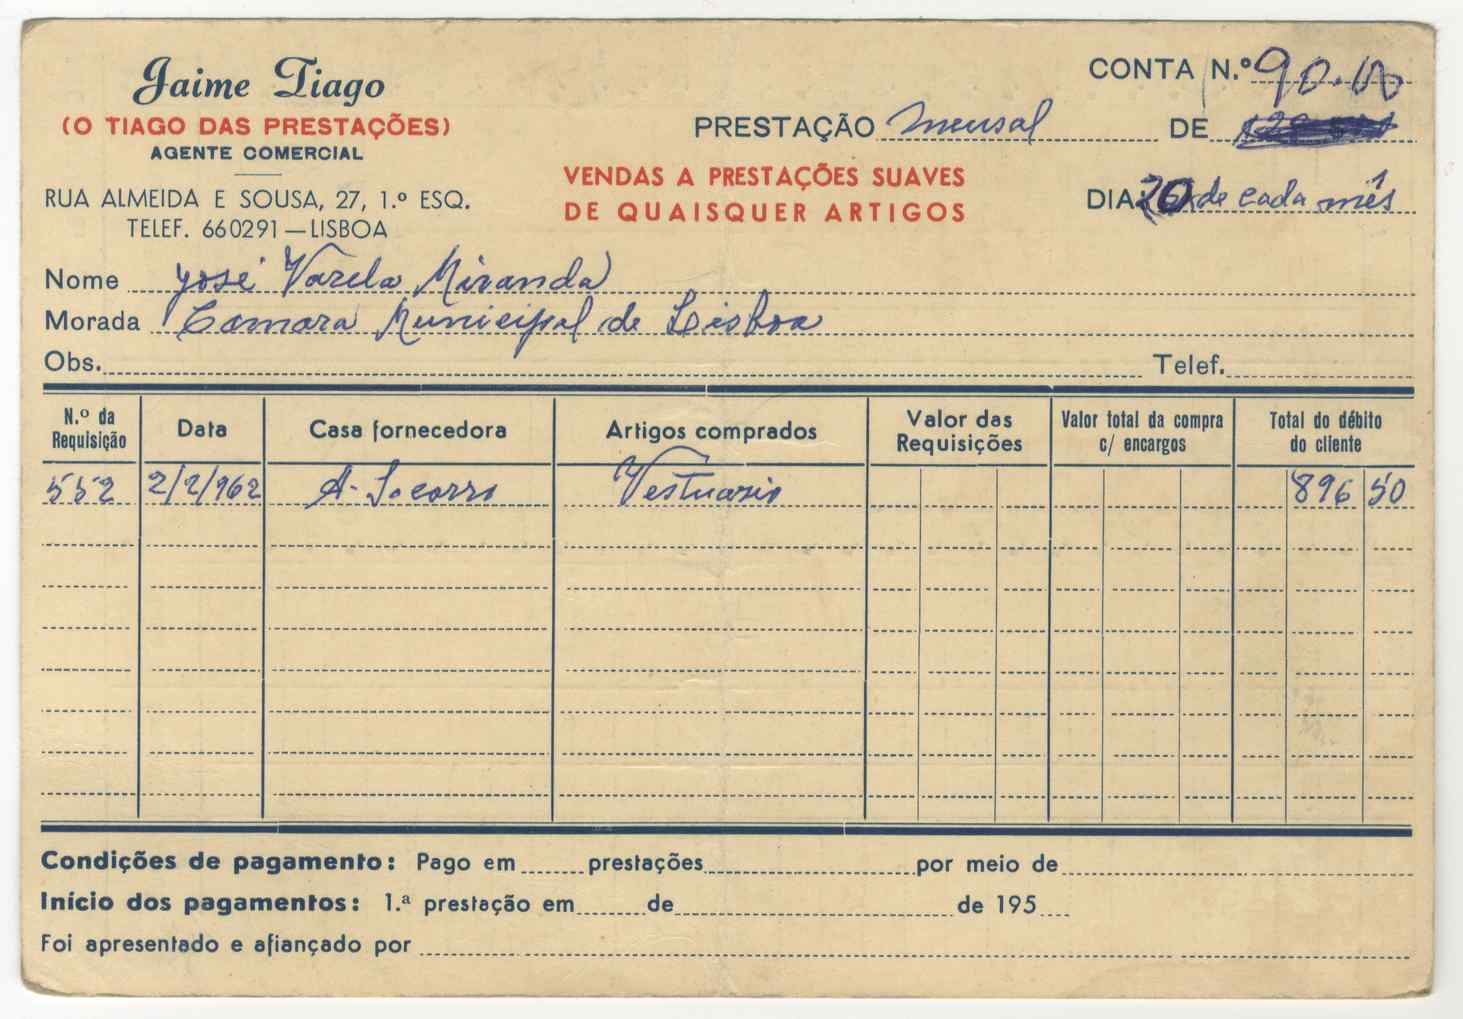 Jaime Tiago
(O TIAGO DAS PRESTAÇÕES)
AGENTE COMERCIAL
RUA ALMEIDA E SOUSA, 27, 1.º ESQ.
TELEF. 660291 — LISBOA
CONTA N.º 90.00
PRESTAÇÃO mensal DE
VENDAS A PRESTAÇÕES SUAVES
DE QUAISQUER ARTIGOS
DIA 20 de cada mês
Nome José Varela Miranda
Morada Camara Municipal de Lisboa
Obs. Telef.
N.º da Requisição Data Casa fornecedora Artigos comprados Valor das Requisições Valor total da compra c/ encargos Total do débito do cliente
552 2/2/962 A. Socorro Vestuario 896 50
Condições de pagamento: Pago em prestações por meio de
Início dos pagamentos: 1.ª prestação em de de 195
Foi apresentado e afiançado por